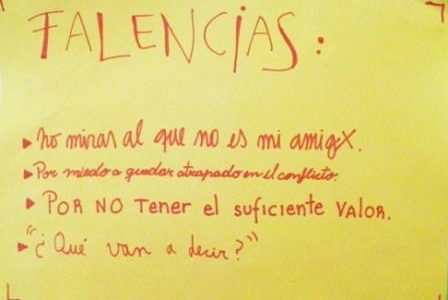 FALENCIAS:
▸ no mirar al que no es mi amigx.
▸ Por miedo a quedar atrapado en el conflicto.
▸ POR NO Tener el suficiente VALOR.
▸ "¿Qué van a decir?"